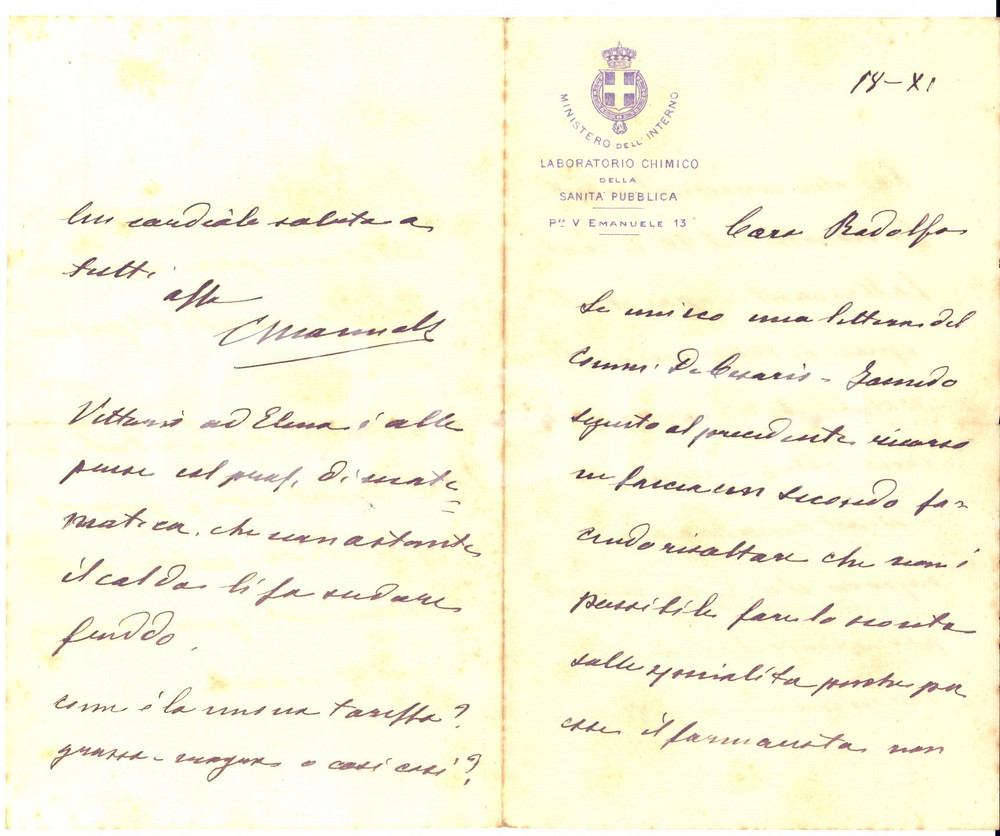 18-XI
MINISTERO DELL'INTERNO
LABORATORIO CHIMICO
DELLA
SANITA' PUBBLICA
Pza V EMANUELE 13
Caro Rodolfo
Le unisco una lettera del
comm. De Cesaris - Facendo
seguito al precedente ricorso
ne faccia un secondo fa=
cendo risaltare che non è
possibile fare lo sconto
sulle specialità perchè per
esse il farmacista non
Un cordiale saluto a
tutti
affo
Vittorio ed Elena è alle
prese col prof. di mate=
matica, che nonostante
il caldo li fa sudare
freddo.
com'è la nuova tariffa?
grassa - magra o così così?